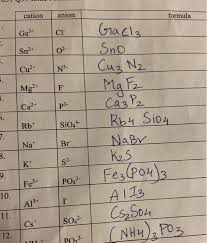 cation anion formula
1. Ga³⁺ Cl⁻ GaCl3
2. Sn²⁺ O²⁻ SnO
3. Cu²⁺ N³⁻ Cu3 N2
4. Mg²⁺ F⁻ MgF2
5. Ca²⁺ P³⁻ Ca3P2
6. Rb⁺ SiO₄⁴⁻ Rb4 SiO4
7. Na⁺ Br⁻ NaBr
8. K⁺ S²⁻ K2S
9. Fe³⁺ PO₄³⁻ Fe3(PO4)3
10. Al³⁺ I⁻ AlI3
11. Cs⁺ SO₄²⁻ Cs2SO4
12. PO₃³⁻ (NH4)3 PO3